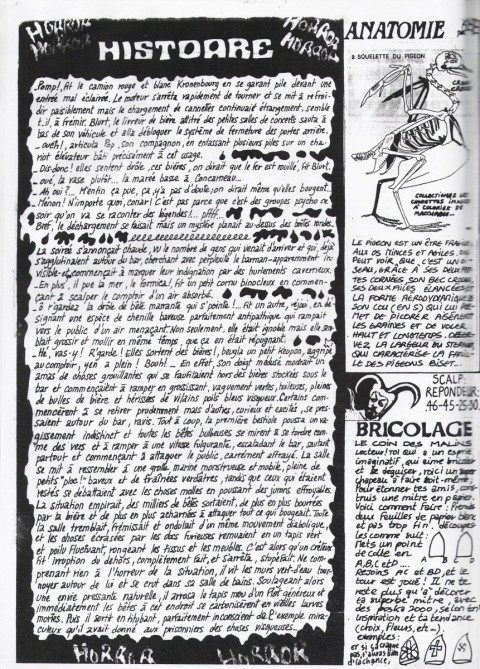 HORROR
HORROR
HORROR
HORROR
HISTOARE
..Pomp!, fit le camion rouge et blanc Kronenbourg en se garant pile devant une
entrée mal éclairée. Le moteur s'arrêta rapidement de tourner et se mit à refroi-
dir paisiblement mais le chargement de cannettes continuait étrangement, semble
t-il, à frémir. Blurt, le livreur de bière attitré des petites salles de concerts sauta à
bas de son véhicule et alla débloquer le système de fermeture des portes arrière.
_oueh!, articula Pop, son compagnon, en entassant plusieurs piles sur un cha-
riot élévateur bâti précisément à cet usage.
_Dis-donc! elles sentent drôle, ces bières, on dirait que le fer est rouillé, fit Blurt.
_oué, la vase plutôt... la marée basse à Concarneau...
_Ah oui?... M'enfin ça pue, ça, y'a pas d'doute; on dirait même qu'elles bougent..
_Ménon! N'importe quoi, conar! C'est pas parce que c'est des groupes psycho ce
soir qu'on va se raconter des légendes!... pfff...
Bref, le déchargement se faisait mais un mystère planait au-dessus des boîtes rondes.
La soirée s'annonçait chaude, vu le nombre de gens qui venait d'arriver et qui, déjà
s'agglutinaient autour du bar, cherchant avec perplexité le barman-apparemment in-
visible-et commençait à marquer leur indignation par des hurlements caverneux.
_En plus, il pue la mer, le formica!, fit un petit cornu binocleux en commen-
çant à scalper le comptoir d'un air absorbé.
_ô r'gardez la drôle de bête marrante qui s'pointe!... fit un autre, réjoui, en dé-
signant une espèce de chenille baveuse parfaitement antipathique qui rampait
vers le public d'un air menaçant. Non seulement, elle était ignoble mais elle sem-
blait grossir et mollir en même temps, que ça en était répugnant.
_Hé, ras-y! R'garde! Elles sortent des bières!, beugla un petit keupon, aggripé
au comptoir, yen a plein! Bouh!... En effet, son doigt moduls montrait un
amas de choses grouillantes qui se faufilaient hors des bières stockées sous le
bar et commençaient à ramper en grossissant, vaguement vertes, huileuses, pleines
de bulles de bière et hérissées de vilains poils bleus visqueux. Certains com-
mencèrent à se retirer prudemment mais d'autres, curieux et excités, se pres-
saient autour du bar, ravis. Tout à coup, la première bestiole poussa un va-
gissement indistinct et toutes les bêtes bulbeuses se mirent à se tordre com-
me des vers et à ramper à une vitesse fulgurante, escaladant le bar, sautant
partout et commençant à attaquer le public, carrément affrayé. La salle
se mit à ressembler à une grotte marine monstrueuse et mobile, pleine de
petits "ploc!" baveux et de traînées verdâtres, tandis que ceux qui étaient
restés se débattaient avec les choses molles en poussant des jurons effroyables.
La situation empirait, des milliers de bêtes sortaient, de plus en plus bourrées
par la bière et de plus en plus acharnées à attaquer tout ce qui bougeait. Toute
la salle tremblait, frémissait et ondulait d'un même mouvement diabolique,
et les choses écrasées par les docs furieuses remuaient en un tapis vert
et poilu fluctuant, rongeant les tissus et les meubles. C'est alors qu'un crêteux
fit irruption du dehors, complètement fait, et s'arrêta, stupéfait. Ne com-
prenant rien à l'horreur de la situation, il vit les murs vert-d'eau tour-
noyer autour de lui et se crut dans sa salle de bains. Soulageant alors
une envie pressante naturelle, il arrosa le tapis mou d'un Pset généreux et
immédiatement les bêtes à cet endroit se cartonnisèrent en vieilles larves
mortes. Puis il sortit en titubant, parfaitement inconscient de l'exemple mira-
culeux qu'il avait donné aux prisonniers des choses visqueuses...
HORROR
HORROR
ANATOMIE
SQUELETTE DU PIGEON
COLLECTIONEZ
CHOUETTES IMAGES
A COLORIER DE
LE PIGEON EST UN ÊTRE
AUX OS MINCES ET
FAUT DIRE QUE C'EST UN OI-
SEAU, GRÂCE À SES DEUX
TES CORNÉES, SON BEC
SES DEUX AILES ÉLANCÉES
LA FORME AÉRODYNAMIQUE
SON COU (EN S) QUI LUI PER-
MET DE PICORER AISÉMENT
LES GRAINES ET DE VOLER
HAUT ET LONGTEMPS. OBSER-
VEZ LA LARGEUR DU STERNUM
QUI CARACTÉRISE LA FAMIL-
LE DES PIGEONS BISET...
SCALP
REPONDEUR:
46-45-25-30
BRICOLAGE
LE COIN DES MALINS
Lecteur! toi qui a un esprit
imaginatif, qui aime
et se déguiser, voici un
chapeau à faire toi-même;
Pour étonner tes amis, cons-
truis une mitre en papier.
Voici comment faire: Prends
deux feuilles de papier
et pas trop fin, découpes
les comme suit:
Mets un point
de colle en
A, B, C et D....
REJOINS AC et BD, et le
tour est joué! Il ne te
reste plus qu'à décorer
ta superbe mitre, avec
des poska 2000, selon ton
inspiration et ta tendance
(choix, fleurs, etc...).
exemples:
et si ça craque
pas, t'auras bien
d'la chance,